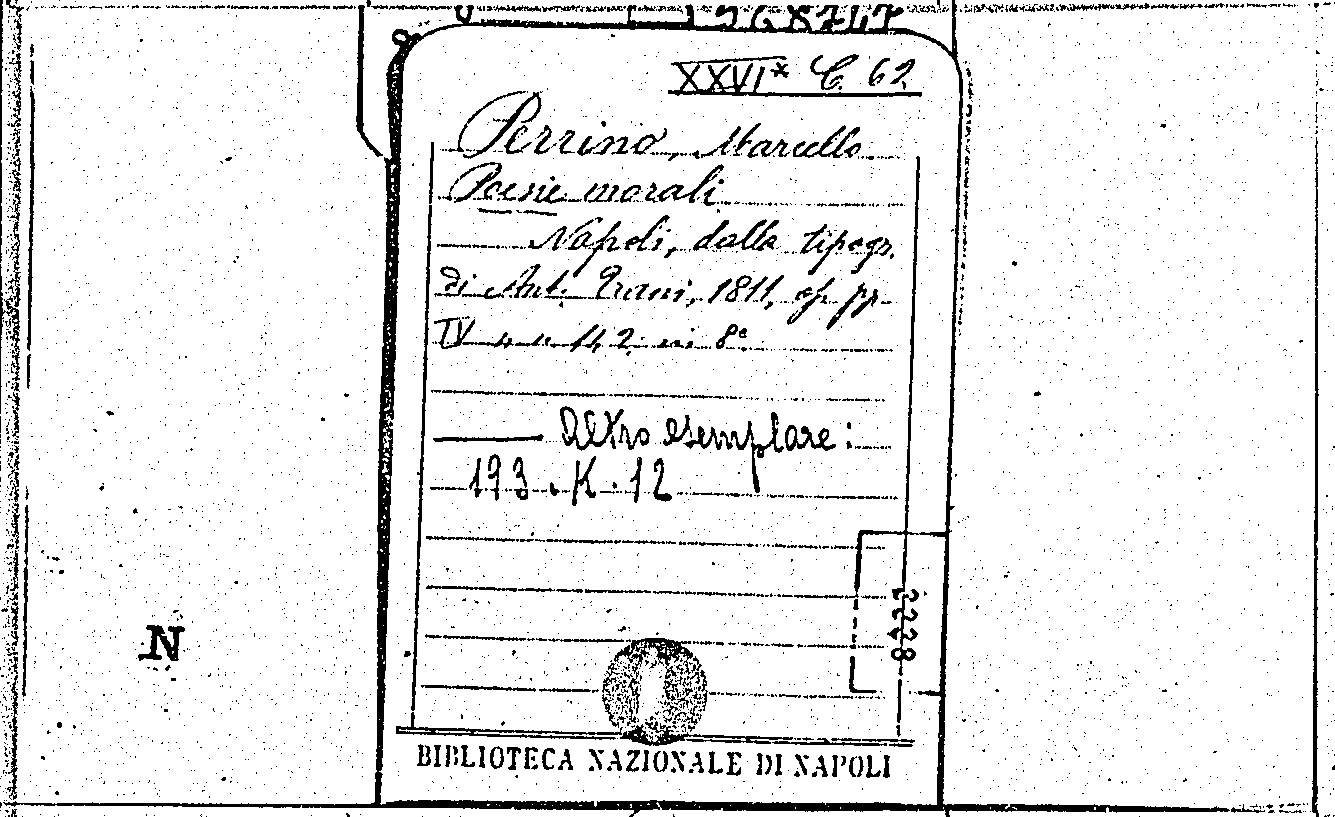 XXVI* C 62
Perrino, Marcello
Poesie morali
Napoli, dalla tipogr.
di Ant. Trani, 1811, pp.
IV 142 in 8°
Altro esemplare:
193.K.12
N
BIBLIOTECA NAZIONALE DI NAPOLI